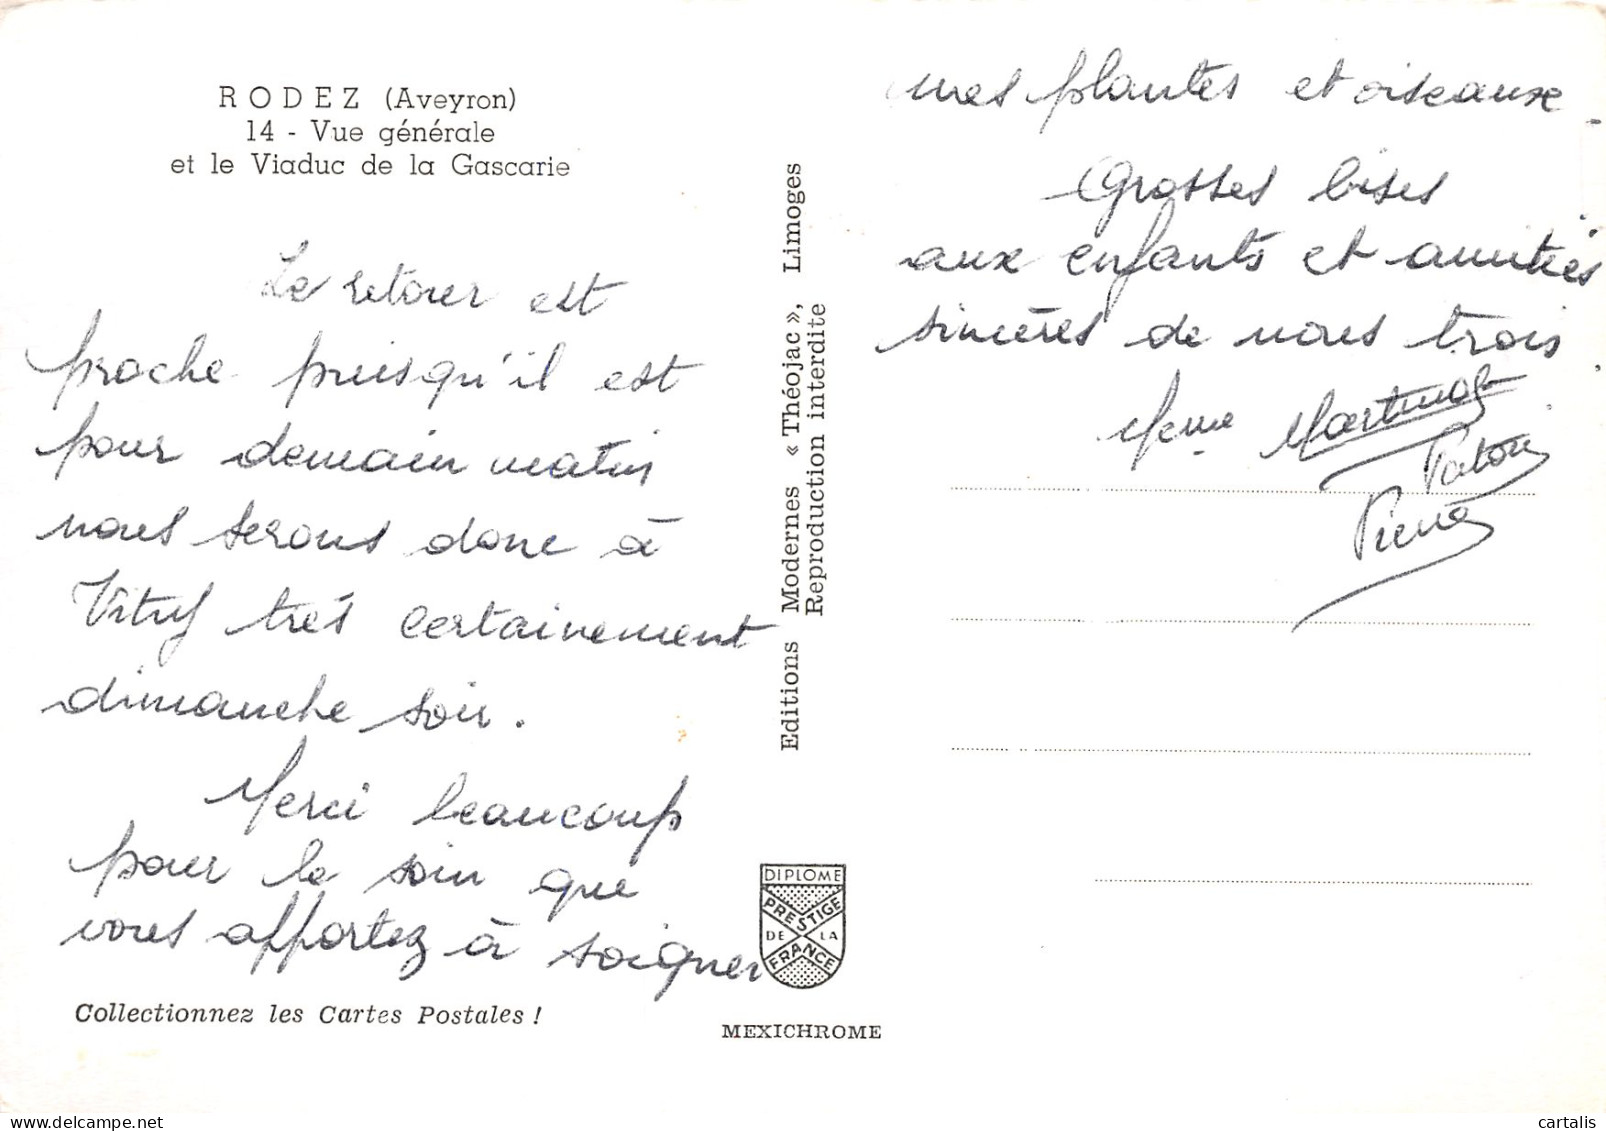 RODEZ (Aveyron)
14 - Vue générale
et le Viaduc de la Gascarie
Le retour est
proche puisqu'il est
pour demain matin
nous serons donc à
Vitry très certainement
dimanche soir.
Merci beaucoup
pour le soin que
vous apportez à soigner
Collectionnez les Cartes Postales !
Editions Modernes « Théojac », Limoges
Reproduction interdite
DIPLOME
PRESTIGE
DE LA
FRANCE
MEXICHROME
mes plantes et oiseaux
Grosses bises
aux enfants et amitiés
sincères de nous trois
Mme
Pierre
cartalis.com